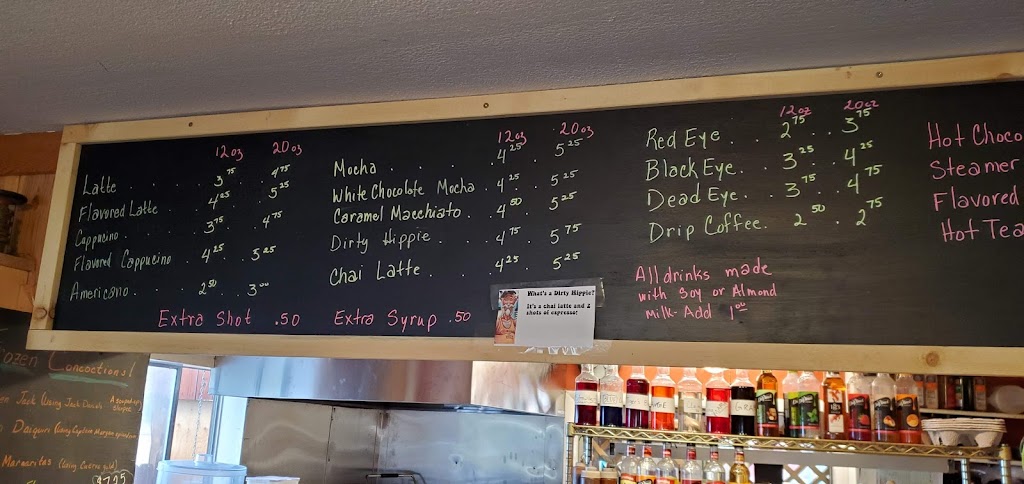 12oz 20oz
Latte . . . . . 3.75 4.75
Flavored Latte . 4.25 . 5.25
Cappucino . . . . 3.75 . 4.75
Flavored Cappucino . 4.25 . 5.25
Americano . . . . 2.50 . . 3.00
Extra Shot .50
12oz 20oz
Mocha . . . . 4.25 . 5.25
White Chocolate Mocha . 4.25 . 5.25
Caramel Macchiato . 4.50 . 5.25
Dirty Hippie . . . 4.75 . 5.75
Chai Latte . . . 4.25 . 5.25
Extra Syrup .50
What's a Dirty Hippie?
It's a chai latte and 2
shots of espresso!
12oz 20oz
Red Eye . . 2.75 . . 3.75
Black Eye . . 3.25 . . 4.25
Dead Eye . . 3.75 . . 4.75
Drip Coffee . 2.50 . 2.75
All drinks made
with Soy or Almond
Milk - Add 1.00
Hot Choco
Steamer
Flavored
Hot Tea
ozen Concoctions!
Jack (Using Jack Daniels
Daiquiri (Using Captain Morgan
Margaritas (Using Cuervo Gold)
$7.25